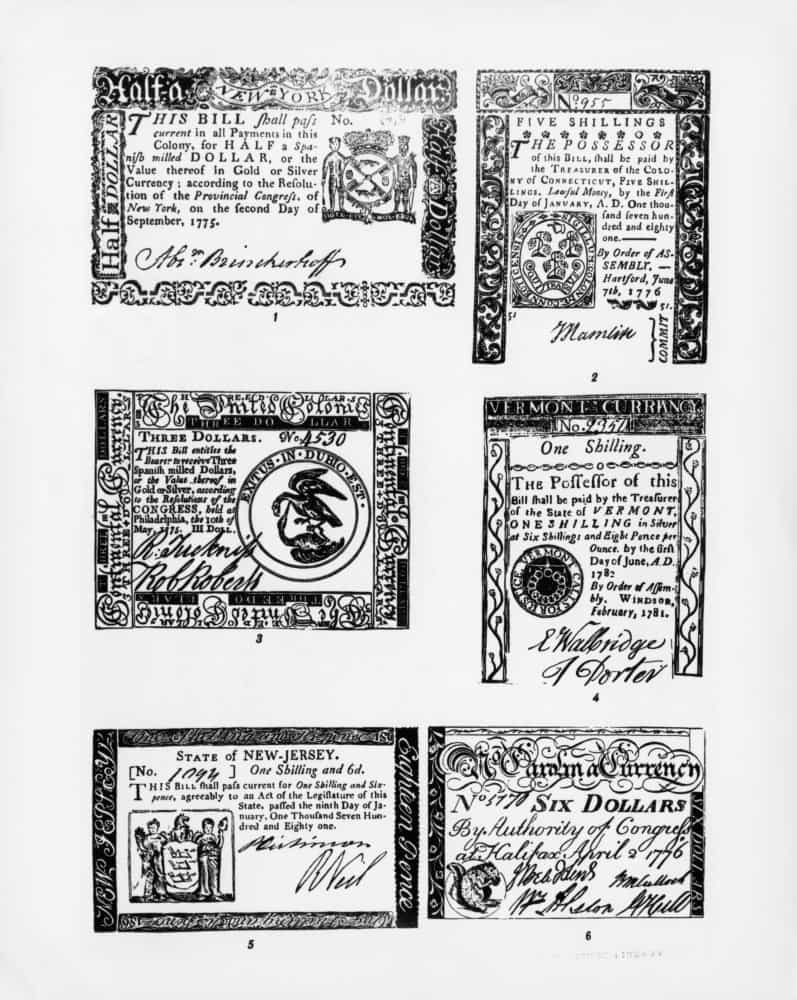 Half a Dollar.
NEW-YORK
Half DOLLAR
Half a Dollar
THIS BILL shall pass No.
current in all Payments in this
Colony, for HALF a Spa-
nish milled DOLLAR, or the
Value thereof in Gold or Silver
Currency; according to the Resolu-
tion of the Provincial Congress, of
New York, on the second Day of
September, 1775.
Abm. Brinckerhoff
1
No 955
FIVE SHILLINGS
THE POSSESSOR
of this BILL, shall be paid by
the TREASURER of the COLO-
NY of CONNECTICUT, FIVE SHIL-
LINGS. Lawful Money, by the First
Day of JANUARY, A. D. One thou-
sand seven hun-
dred and eighty
one.
By Order of AS-
SEMBLY.
Hartford, June
7th, 1776
51
51.
COMMIT
2
The United Colonies
THREE DOLLAR
THREE DOLLARS. No. 4530
THIS Bill entitles the
Bearer to receive Three
Spanish milled Dollars,
or the Value thereof in
Gold or Silver, according
to the Resolutions of the
CONGRESS, held at
Philadelphia, the 10th of
May, 1775. III DOLL.
EXITUS · IN · DUBIO · EST ·
Rob Roberts
3
VERMONT CURRENCY.
No. 2351
One Shilling.
THE Possessor of this
Bill shall be paid by the Treasurer
of the State of VERMONT,
ONE SHILLING in Silver
at Six Shillings and Eight Pence per
Ounce. by the first
Day of June, A.D.
1782
By Order of Assem-
bly. WINDSOR,
February, 1781.
VERMONT CALLS FOR JUSTICE
E Walbridge
T Porter
4
One Shilling and Sixpence
STATE of NEW-JERSEY.
[No. 1094 ] One Shilling and 6d.
THIS BILL shall pass current for One Shilling and Six-
pence, agreeably to an Act of the Legislature of this
State, passed the ninth Day of Ja-
nuary, One Thousand Seven Hun-
dred and Eighty one.
R Neil
Eighteen Pence
5
No Carolina Currency
No 5170 SIX DOLLARS
By Authority of Congress
at Halifax, April 2 1776
6